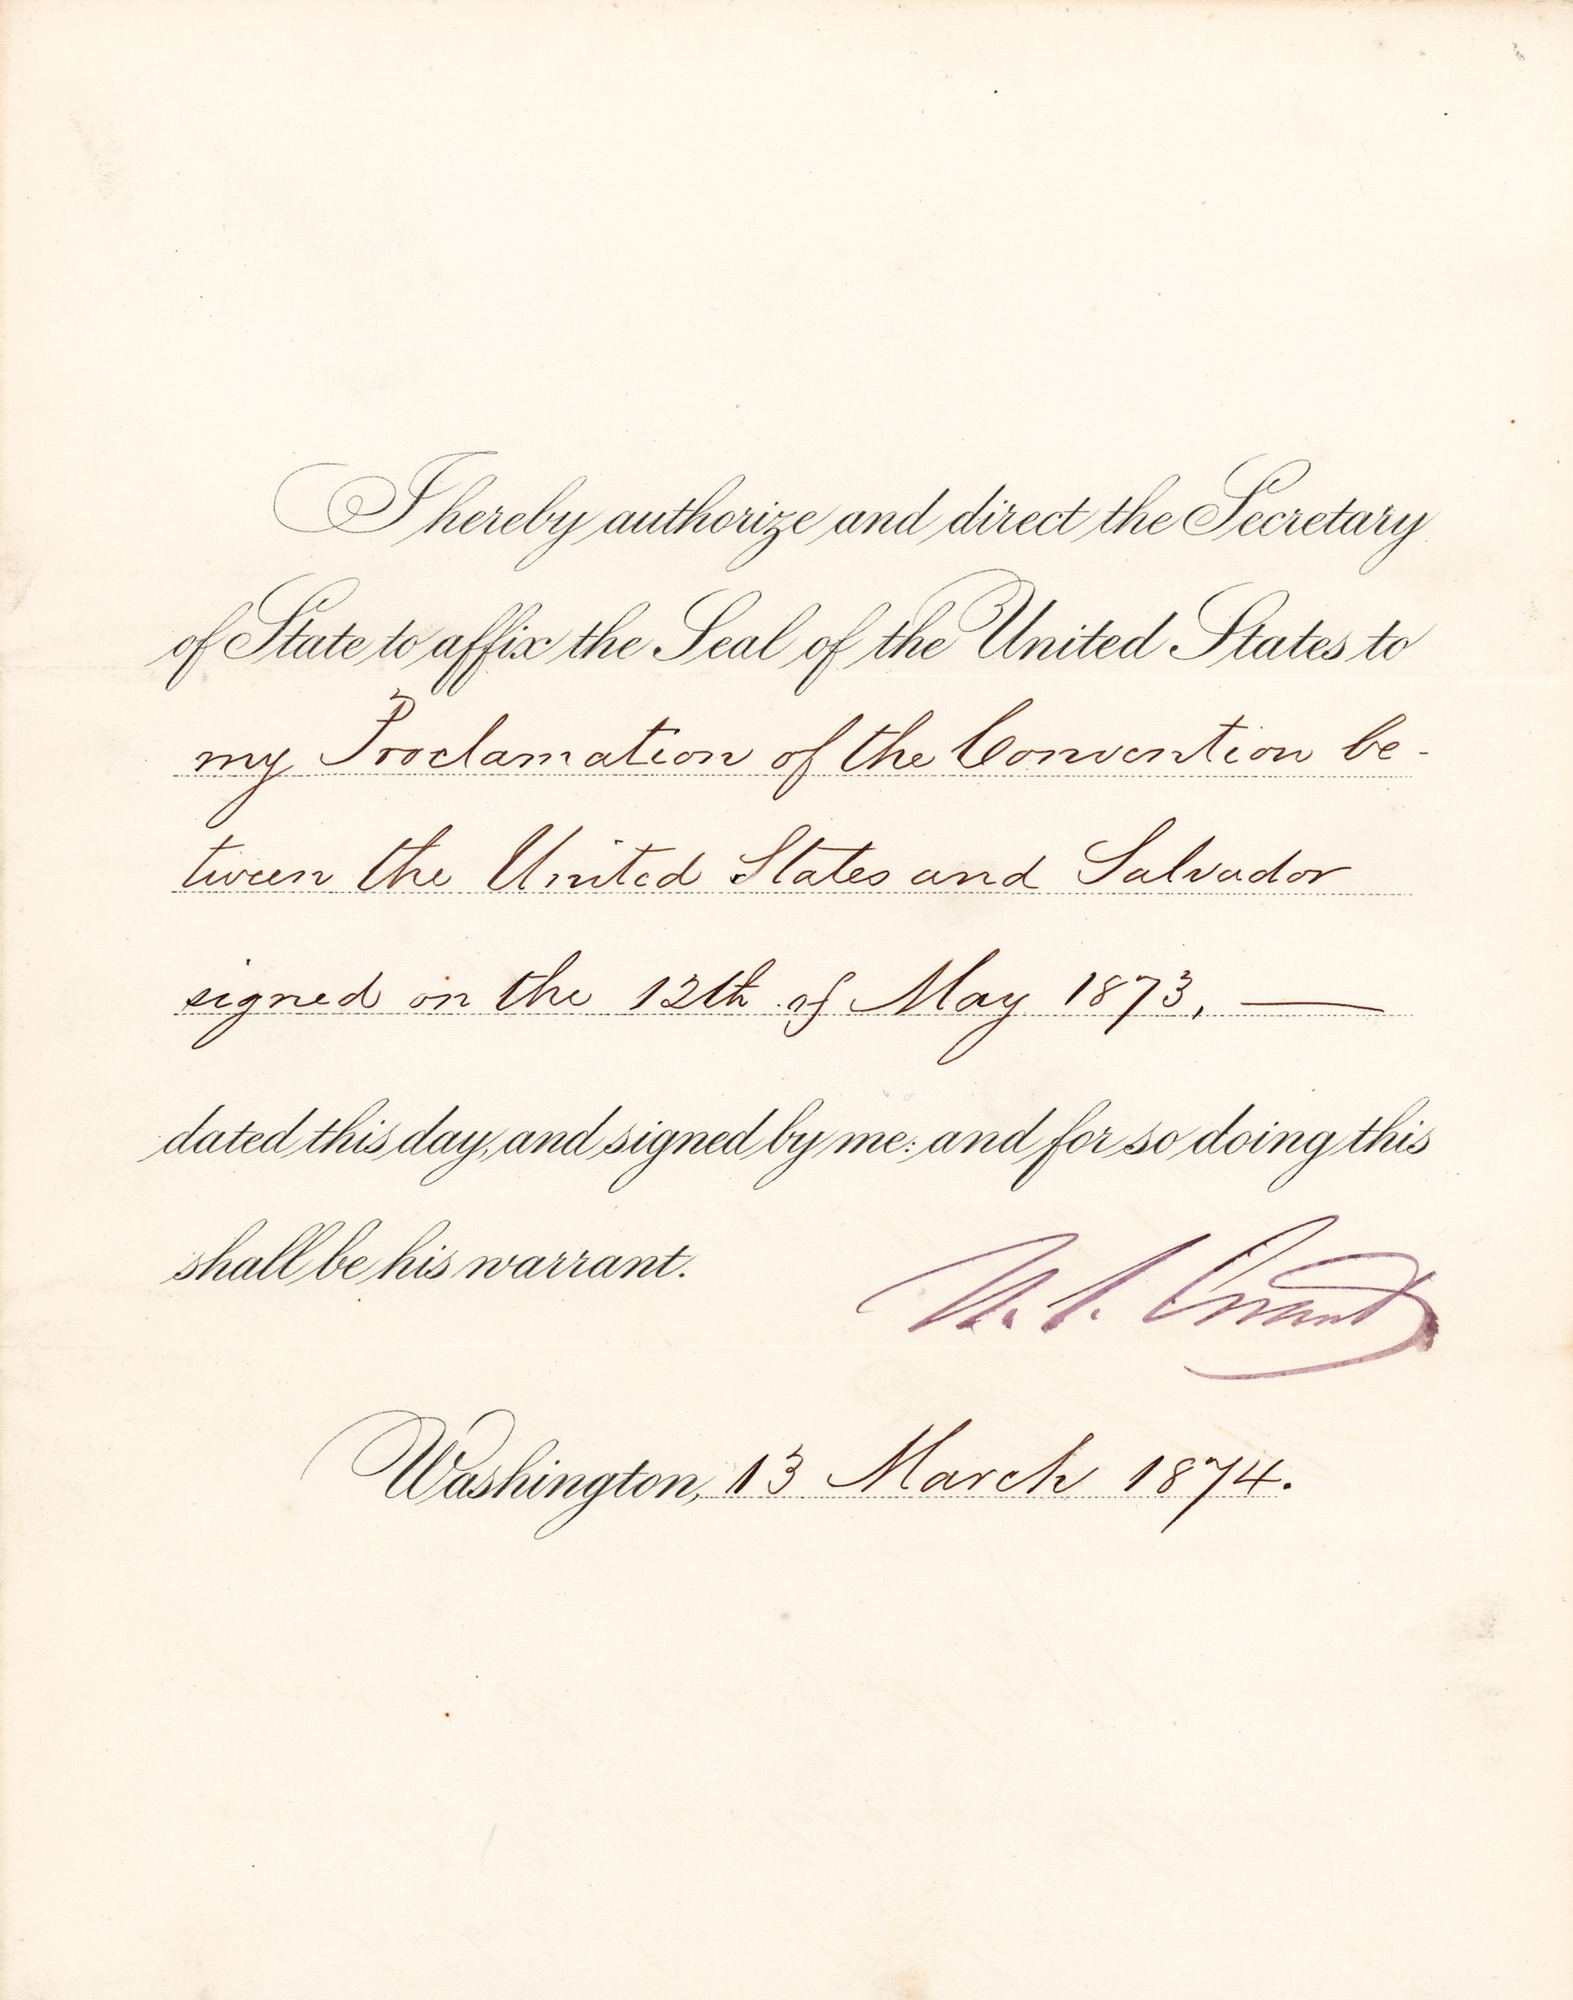 I hereby authorize and direct the Secretary
of State to affix the Seal of the United States to
my Proclamation of the Convention be-
tween the United States and Salvador
signed on the 12th of May 1873, —
dated this day, and signed by me: and for so doing this
shall be his warrant.
U. S. Grant
Washington, 13 March 1874.